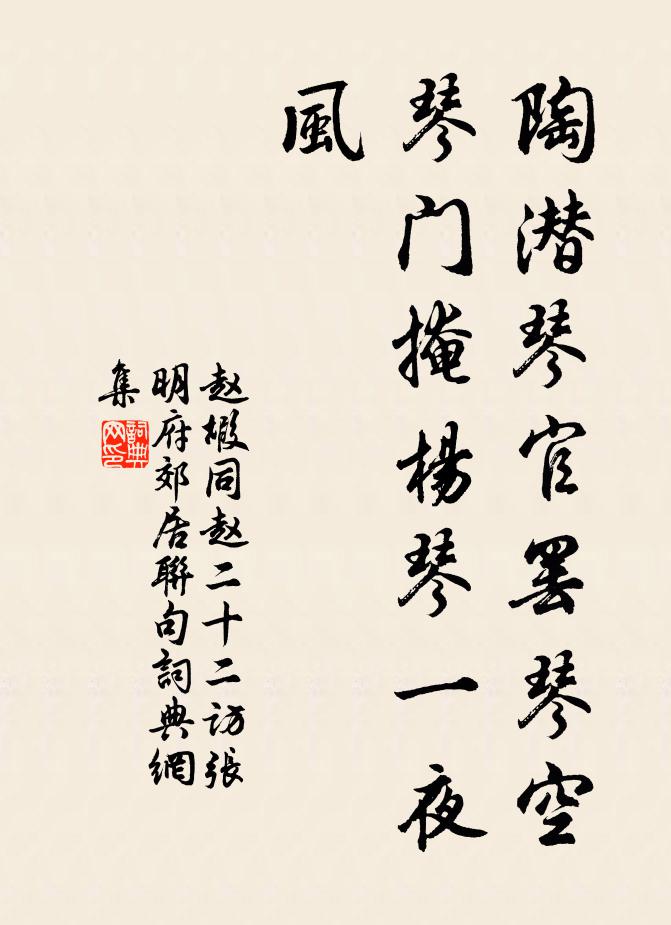 陶潜琴官罢琴空
琴门掩楊琴一夜
風
赵嘏同赵二十二访張
明府郊居聯句詞典網
集
詞典
网印